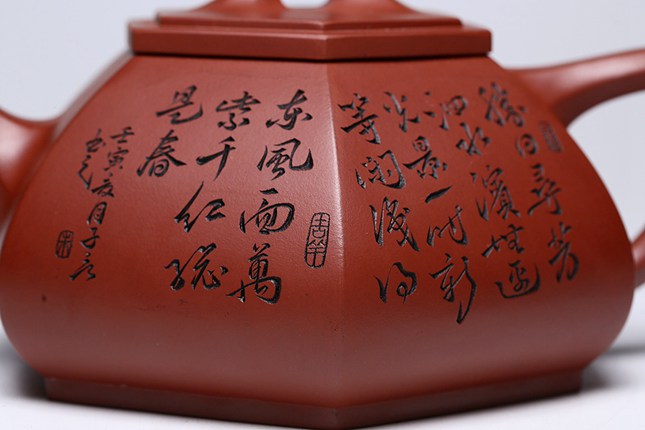 勝日尋芳
泗水濱無邊
光景一时新
等闲識得
东風面萬
紫千红總
是春
壬寅夏月子言
书之